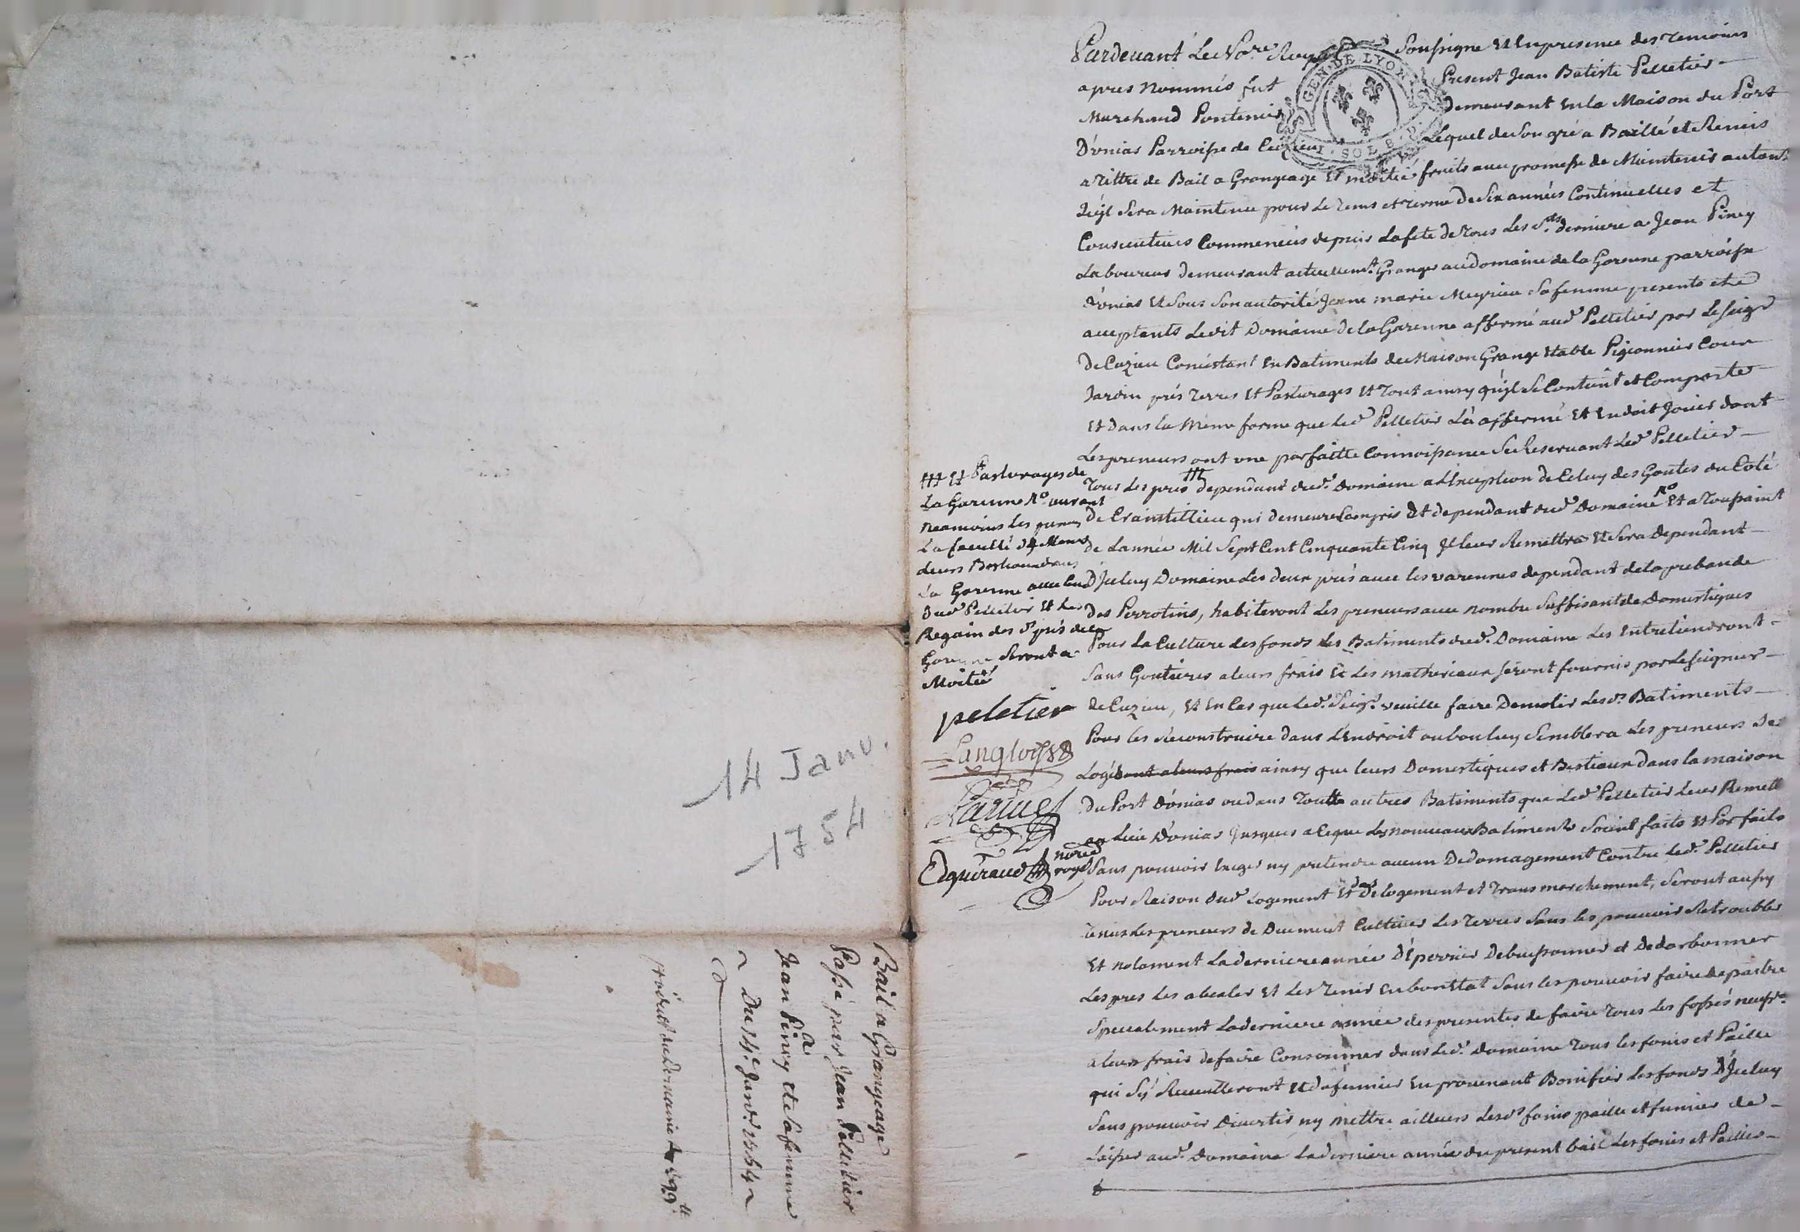 Pardevant Le No.re Royal Soussigne Et En presence des Temoins
apres Nommés fut Present Jean Batiste Pelletier
Marchand Pontenier Demeurant En la Maison du Port
D'onias Parroisse de Cuzieu Lequel de Son gré a Baillé et Remis
a Tittre de Bail a Grangeage Et moitié fruits avec promesse de Maintenir autant
qu'jl Sera Maintenu pour Le Tems et Terme De Six années Continuelles et
Consecutives Commencées depuis La fete de Tous Les S.ts derniere a Jean Piney
Laboureur demeurant actuellem.t Granger au domaine de la Garenne parroisse
d'onias Et Sous Son autorité Jeanne marie Meyrieu Sa femme presents et
acceptants Ledit Domaine de la Garenne affermé aud. Pelletier par Le Seigr
De Cuzieu Concistant En Batiments de Maison Grange Etable Pigeonnier Cour
Jardin prés Terres Et Pasturages Et Tout ainsy qu'jl Se Contient et Comporte
Et Dans la Méme forme que Led. Pelletier L'a affermé Et En doit Jouir dont
Les preneurs ont une parfaitte Connoissance Se Reservant Led. Pelletier
Tous Les prés ## dependant dud. Domaine a L'Exception de Celuy des Goutes du Coté
de Craintillieu qui demeure Compris Et dependant dud. Domaine R.o Et a Toussaint
de L'année Mil Sept Cent Cinquante Cinq Jl leur Remettra Et Sera Dependant
D'Jceluy Domaine Les deux prés avec les varennes dependant de la prebande
des Perrotins, habiteront Les preneurs avec nombre Suffisant de Domestiques
Pour La Culture des fonds Les Batiments dud. Domaine Les Entretiendront
Sans Goutieres a leurs frais Et Les matheriaux Seront fournis par Le Seigneur
de Cuzieu, Et En Cas que Led. Seigr. veuille faire Demolir Lesd. Batiments
Pour les Reconstruire dans L'Endroit ou bon luy Semblera Les preneurs Se
Logeront a leurs frais ainsy que leurs Domestiques et Bestiaux dans la maison
Du Port D'onias ou dans Toutte autres Batiments que Led. Pelletier Leur Remett
au Lieu D'onias Jusques a Ce que Les nouveaux Batiments Soient faits Et Parfaits
Sans pouvoir Exiger ny pretendre aucun Dedomagement Contre Led. Pelletier
Pour Raison dud. Logement Et des delogement et Transmarchement, Seront aussy
tenus Les preneurs de Duement Cultiver Les Terres Sans les pouvoir Retroubler
Et notament La derniere année D'Epeirier Debuissonner et Dedarbonner
Les pres les abealer Et Les Tenir En bon Etat Sans les pouvoir faire depaitre
Specialement La derniere année des presentes de faire Tous Les fossés necess.res
a leurs frais de faire Consommer dans Led. Domaine Tous les foins et Paille
qui S'y Recueilleront Et du fumier En provenant Bonifier Les fonds D'Jceluy
Sans pouvoir Divertir ny Mettre ailleurs Lesd. foins paille et fumier de
Laisser aud. Domaine La derniere année du present bail Les foins et Pailles
GEN. DE LYON
SOL
## Et Pasturages de
La Garenne R.o auront
neanmoins Les preneurs
La faculté de Mener
leurs Bestiaux dans
La Garenne avec Ceux
dud. Pelletier Et Les
Regain des d. prés de la
Garenne Seront a
Moitié
peletier
Langlois
Equiraud no.re royal
14 Janv.
1754
Bail a Grangeage
Passé par Jean Pelletier
a
Jean Piney et Sa femme
Du 14.e Janv. 1754